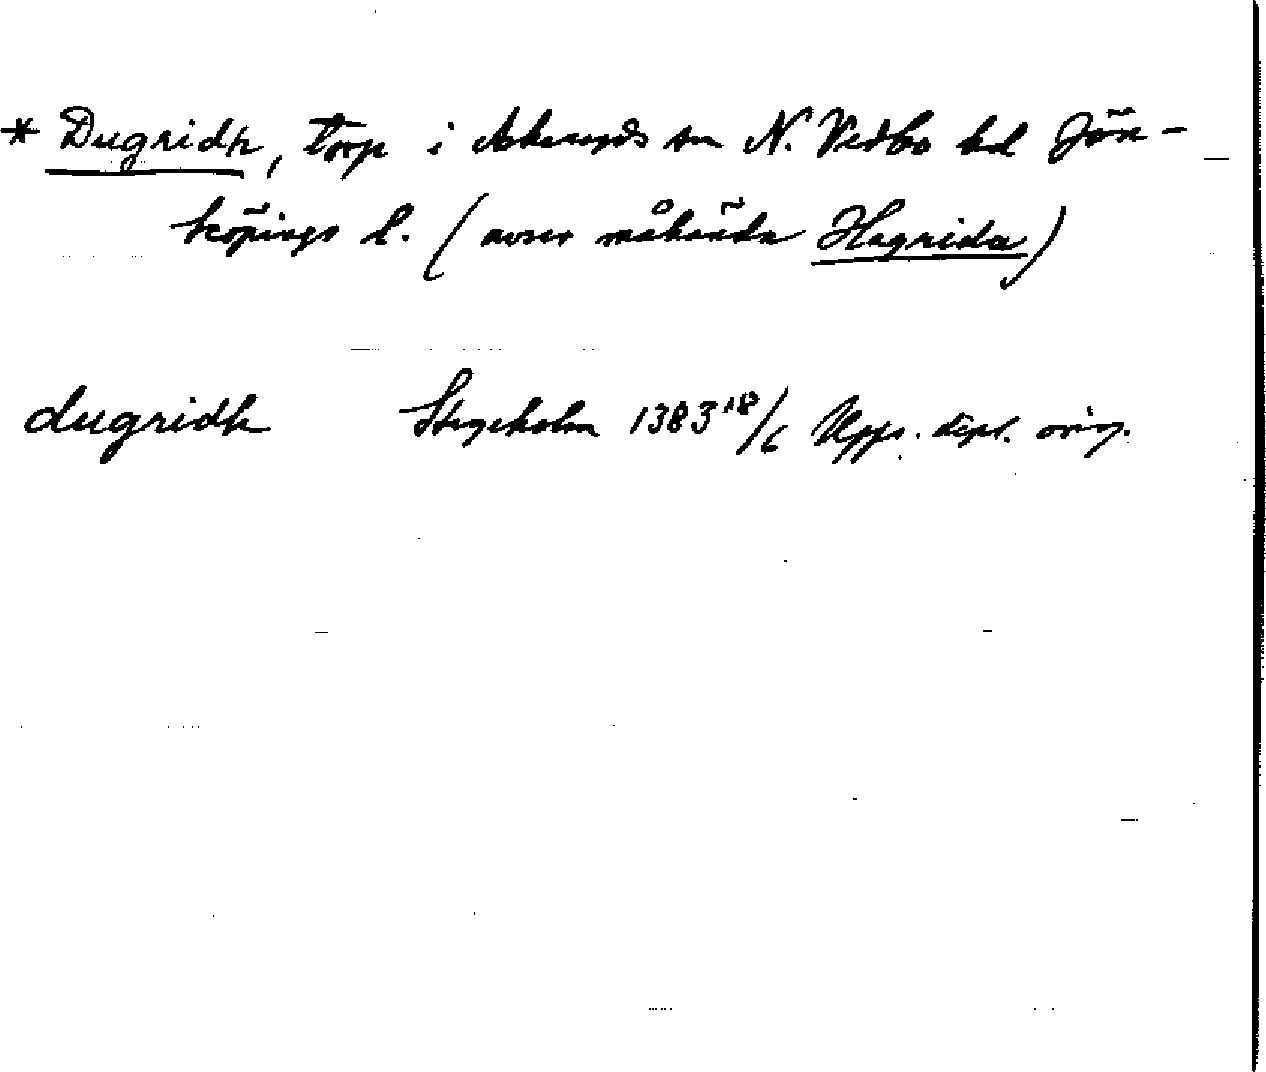 * Dugridh, torp i Askeryds sn N. Vedbo hd Jön-
köpings l. (avser måhända Hagrida)
dugridh Stegeholm 1383 18/6 Upps. dipl. orig.